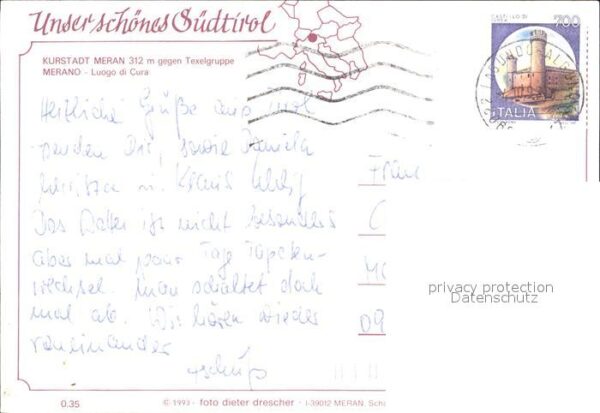 Unser schönes Südtirol
KURSTADT MERAN 312 m gegen Texelgruppe
MERANO - Luogo di Cura
CASTELLO DI
700
ITALIA
Herzliche Grüße aus
senden Dir, sowie Daniela
u. Klaus
Frau
Das Wetter ist nicht besonders
aber mal paar Tage Tapeten-
wechsel. Man schaltet doch
mal ab. Wir hören wieder
voneinander
tschüß
09
privacy protection
Datenschutz
0.35
©-1993 - foto dieter drescher - I-39012 MERAN,